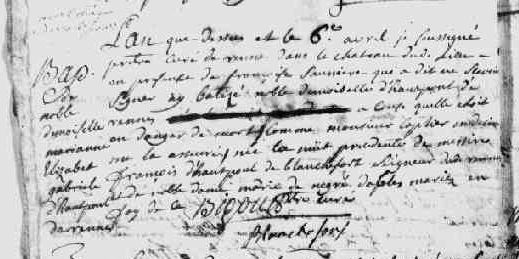 Bap.
de
noble
demoiselle
marianne
Elizabet
gabriele
d'hautpoul
de rennes
L'an que dessus et le 6e avril je soussigné
prêtre curé de rennes dans le chateau dud. lieu
en presence de françoise Sauniere qui a dit ne scavoir
signer ay batizé noble demoiselle d'hautpoul de
rennes a cause quelle étoit
en danger de mort comme monsieur medecin
me la assuré née la nuit précédente de messire
françois d'hautpoul de blanchefort seigneur dud. rennes
et de noble dame marie de negre d'ables mariés en
foy de ce Bigou ptre curé
Blanchefort